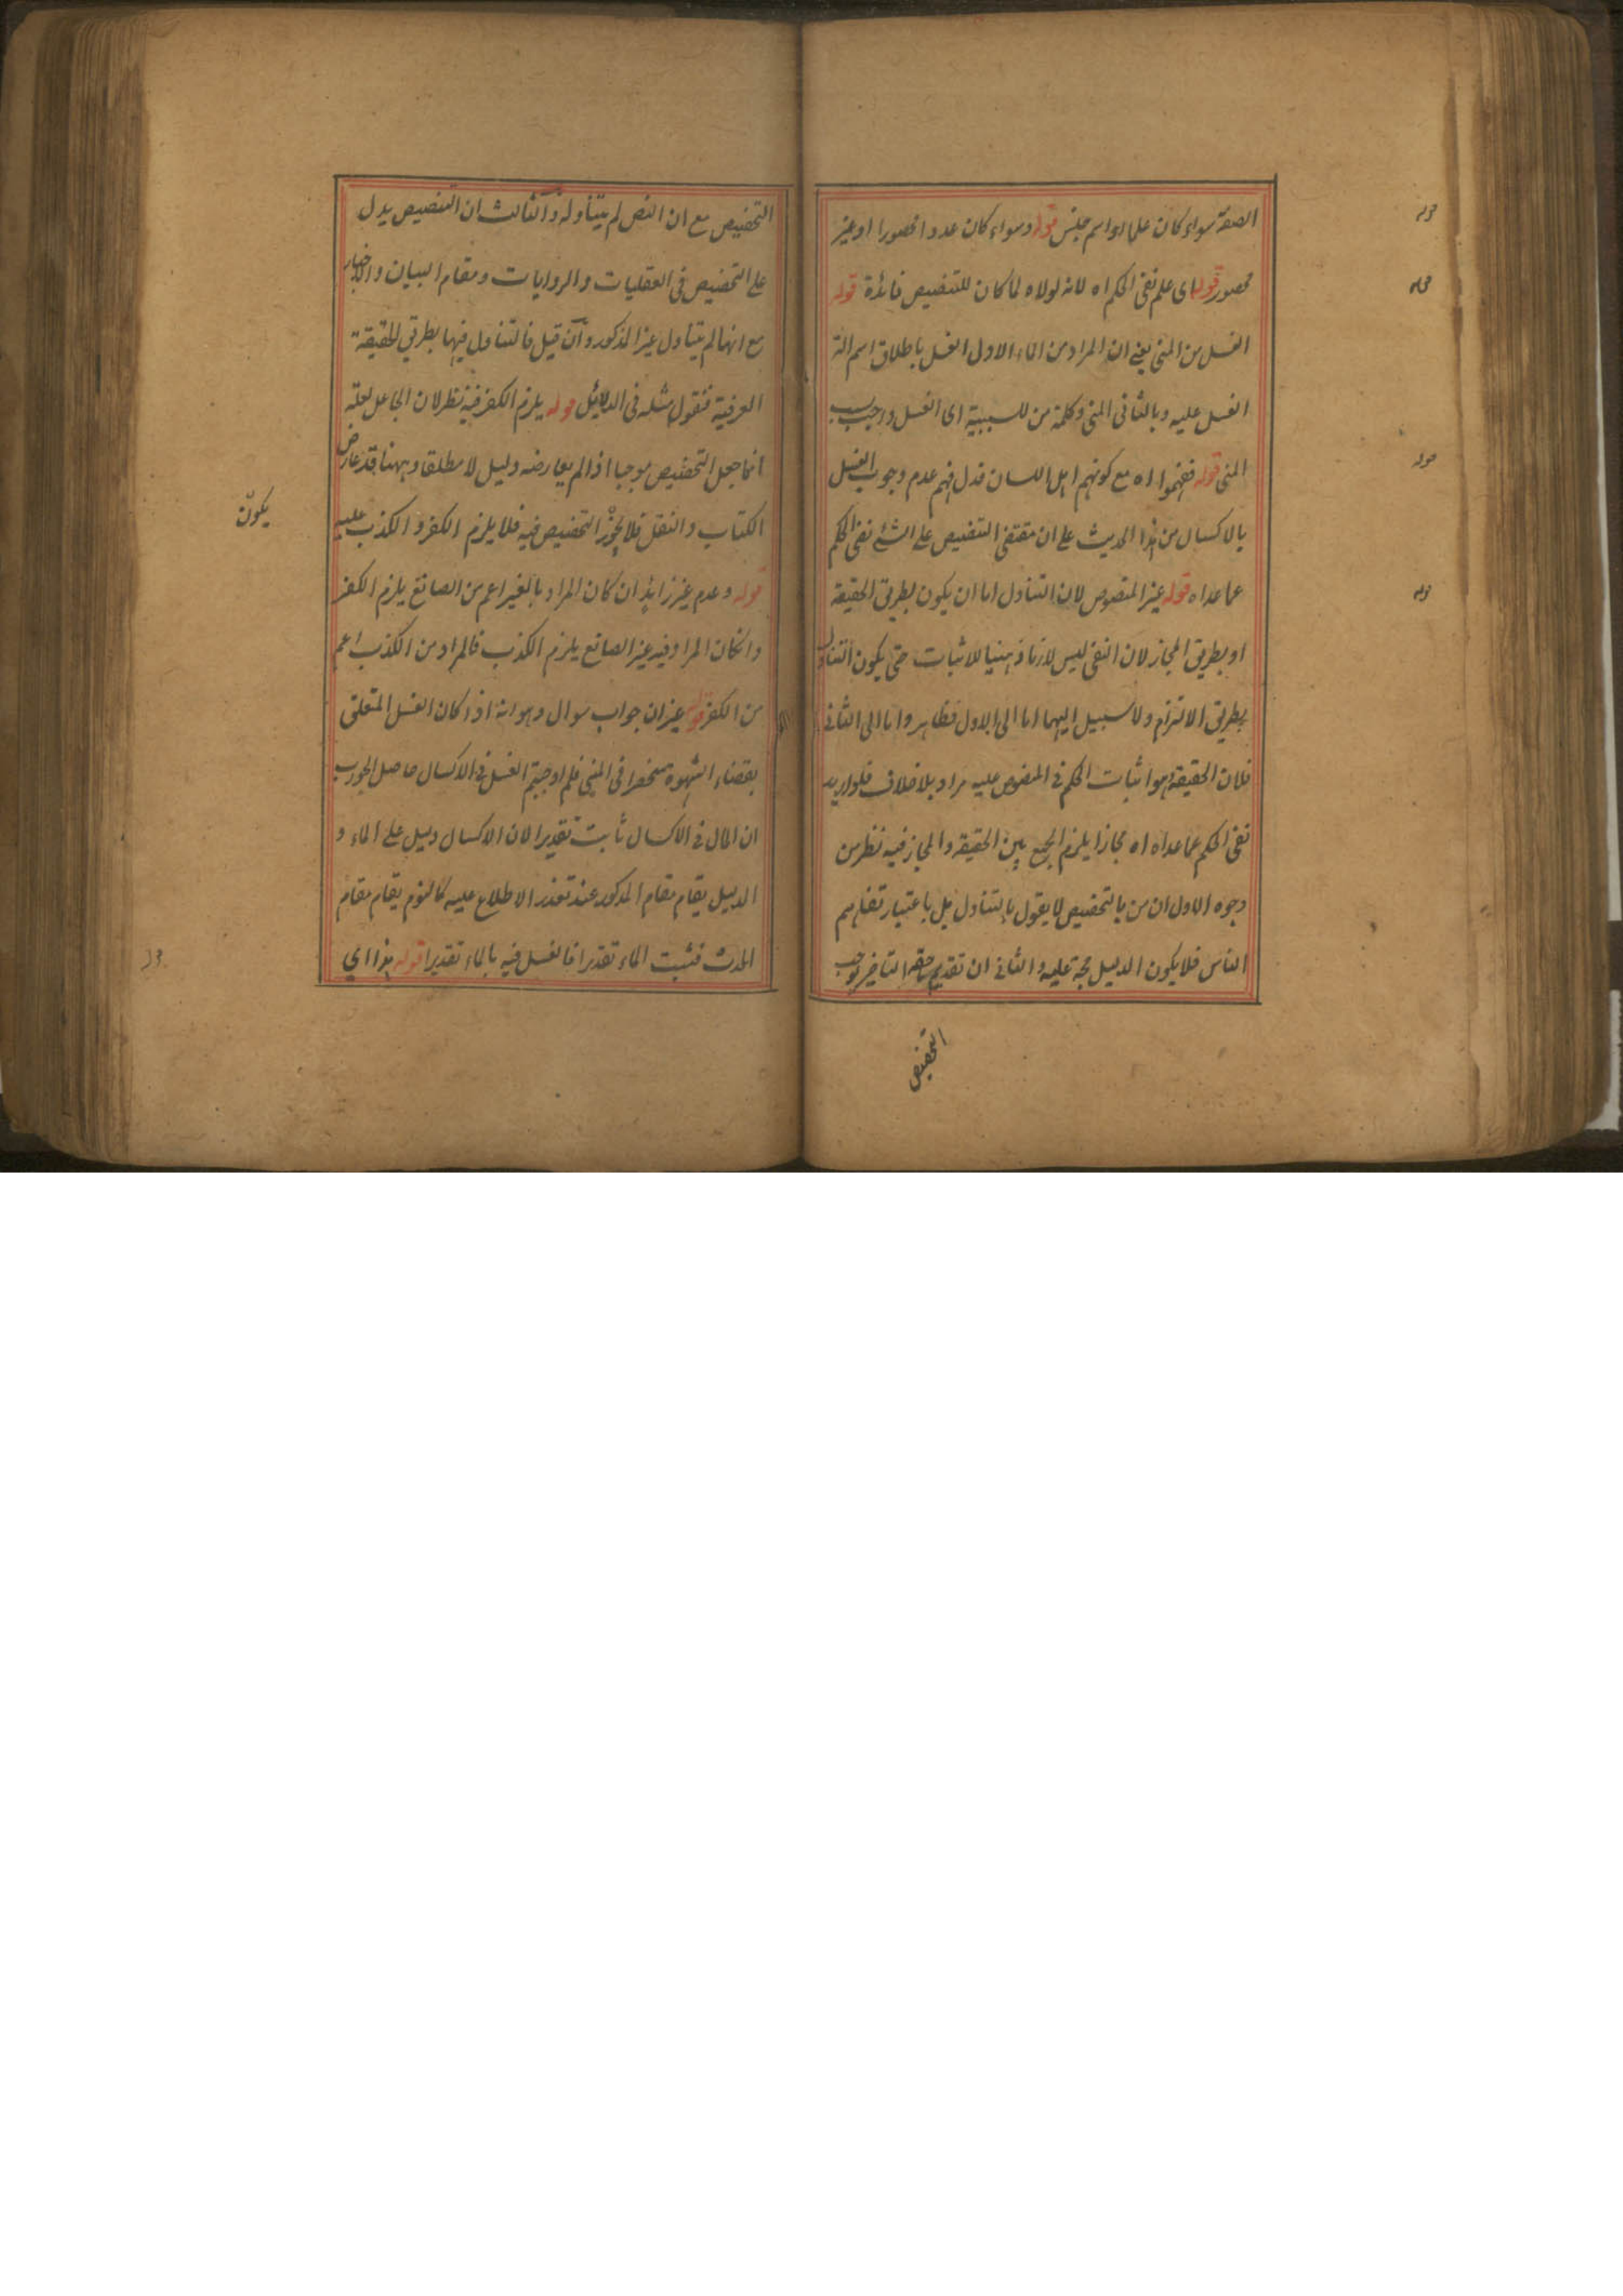 الصفة سواء كان علما او اسم جنس قوله وسواء كان عددا محصورا او غير
محصور قوله اى علم نفى الحكم اه لانه لولاه لما كان للتنصيص فائدة قوله
الغسل من المنى يعنى ان المراد من الماء الاول الغسل باطلاق اسم آلة
الغسل عليه وبالثانى المنى وكلمة من للسببية اى الغسل واجب بسبب
المنى قوله ففهموا اه مع كونهم اهل اللسان فدل فهم عدم وجوب الغسل
بالاكسال من هذا الحديث على ان مقتضى التنصيص على الشئ نفى الحكم
عما عداه قوله غير المنصوص لان التناول اما ان يكون بطريق الحقيقة
او بطريق المجاز لان النفى ليس لازما ذهنيا للاثبات حتى يكون التناول
بطريق الالتزام ولا سبيل اليهما اما الى الاول فظاهر واما الى الثانى
فلان الحقيقة وهو اثبات الحكم فى المنصوص عليه مراد بلا خلاف فلو اريد
نفى الحكم عما عداه اه مجازا يلزم الجمع بين الحقيقة والمجاز فيه نظر من
وجوه الاول ان من بالتخصيص لا يقول بالتناول بل باعتبار تفاهم
الناس فلا يكون الدليل حجة عليه والثانى ان تقديم ما حقه التاخير يوجب
التخصيص
التخصيص مع ان النص لم يتناوله والثالث ان التنصيص يدل
على التخصيص فى العقليات والروايات ومقام البيان والاخبار
مع انها لم يتناول غير المذكور وان قيل فالتناول فيها بطريق الحقيقة
العرفية فنقول مثله فى الدلائل قوله يلزم الكفر فيه نظر لان الجاعل لعلة
انما جعل التخصيص موجبا اذا لم يعارضه دليل لا مطلقا وههنا قد عارض
الكتاب والنقل فلا يجوز التخصيص فيه فلا يلزم الكفر والكذب عليه
يكون
قوله وعدم غير زايد ان كان المراد بالغير اعم من الصانع يلزم الكفر
وانكان المراد فيه غير الصانع يلزم الكذب فالمراد من الكذب اعم
من الكفر قوله غير ان جواب سوال وهو انه اذا كان الغسل المتعلق
بقضاء الشهوة منحصرا فى المنى فلم اوجبتم الغسل فى الاكسال حاصل الجواب
ان المال فى الاكسال ثابت تقديرا لان الاكسال دليل على الماء و
الدليل يقام مقام المذكور عند تعذر الاطلاع عليه كالنوم يقام مقام
الحدث فثبت الماء تقديرا فالغسل فيه بالماء تقديرا قوله هذا اى